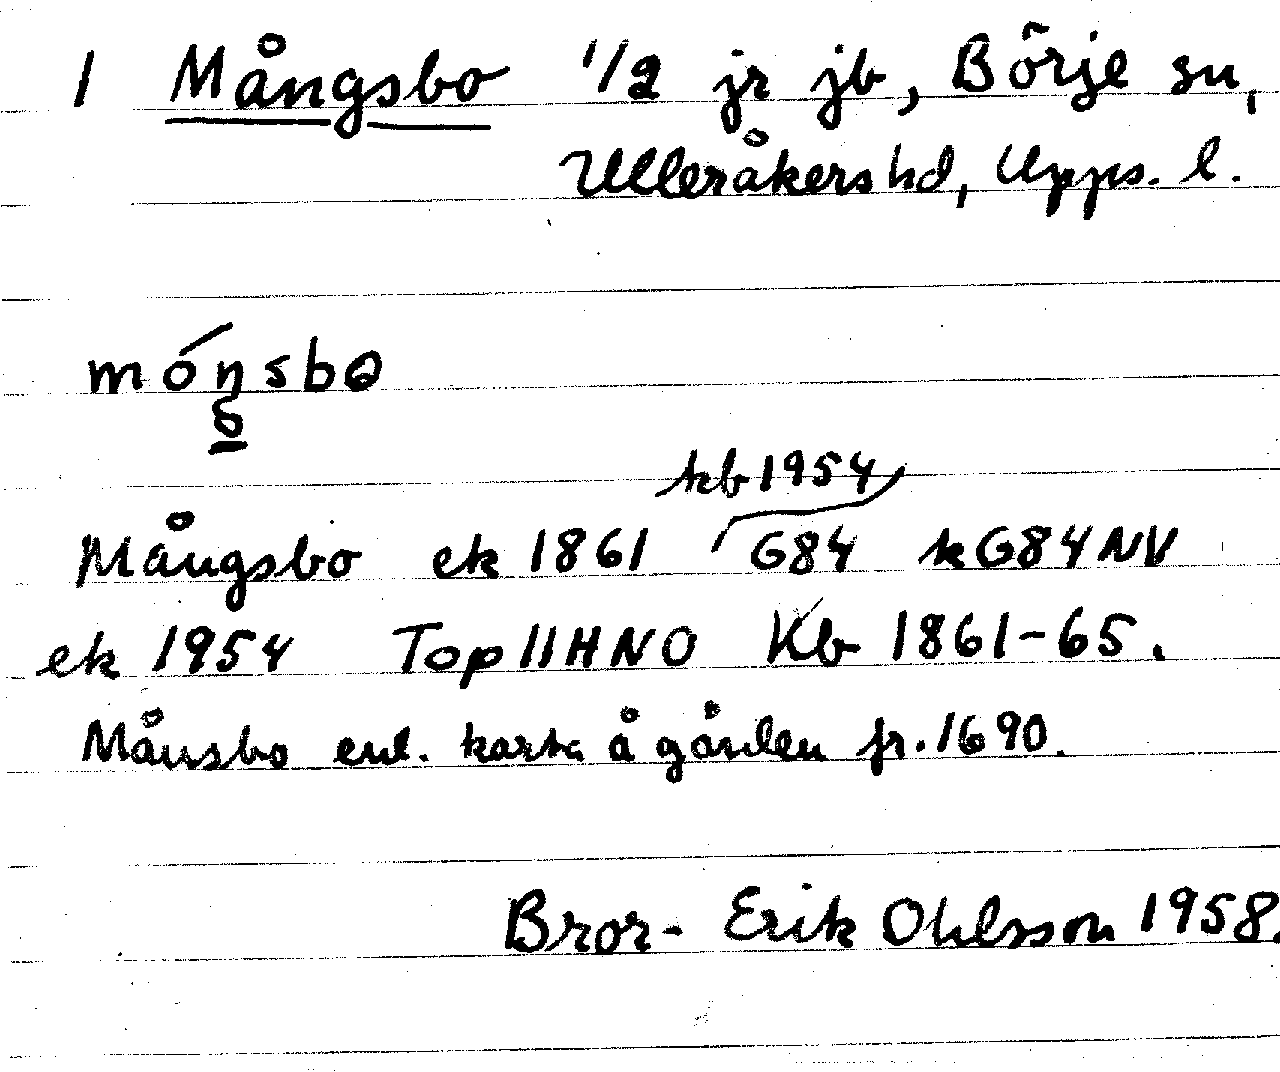 1 Mångsbo 1/2 jr jb, Börje sn,
Ulleråkers hd, Upps. l.
mónsbo
jkb 1954
Mångsbo ek 1861 G84 k G84NV
ek 1954 Top 11HNO Kb 1861-65.
Månsbo enl. karta å gården fr. 1690.
Bror-Erik Ohlsson 1958.